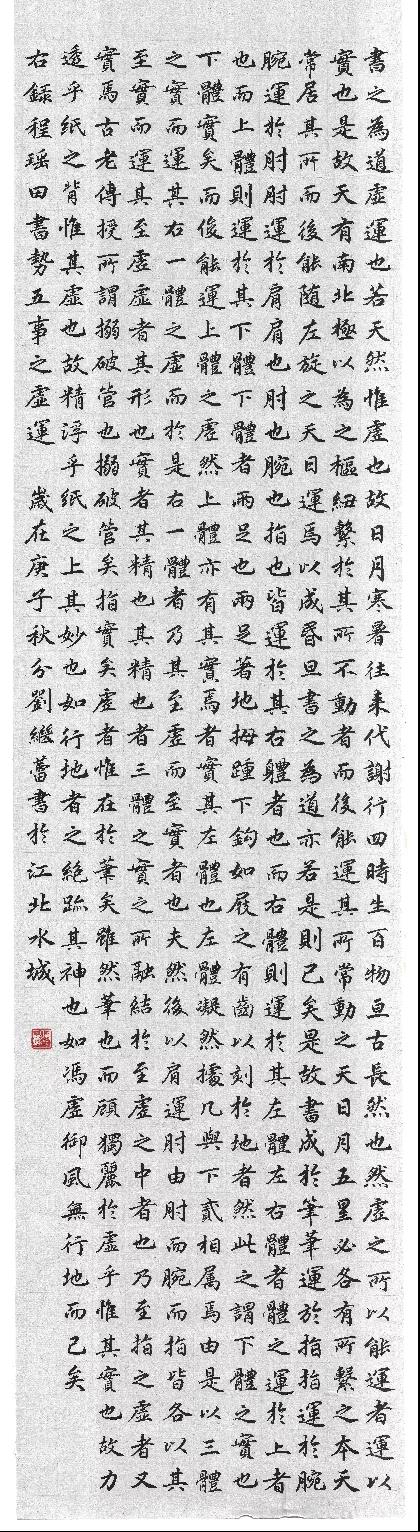 書之為道虛運也若天然惟虛也故日月寒暑往来代謝行四時生百物亘古長然也然虛之所以能運者運以
實也是故天有南北極以為之樞紐繫於其所不動者而後能運其所常動之天日月五星必各有所繫之本天
常居其所而後能随左旋之天日運焉以成昏旦書之為道亦若是則已矣是故書成於筆筆運於指指運於腕
腕運於肘肘運於肩肩也肘也腕也指也皆運於其右軆者也而右體則運於其左體左右體者體之運於上者
也而上體則運於其下體下體者兩足也兩足著地拇踵下鈎如屐之有齒以刻於地者然此之謂下體之實也
下體實矣而後能運上體之虛然上體亦有其實焉者實其左體也左體凝然據几與下貳相属焉由是以三體
之實而運其右一體之虛而於是右一體者乃其至虛而至實者也夫然後以肩運肘由肘而腕而指皆各以其
至實而運其至虛虛者其形也實者其精也其精也者三體之實之所融結於至虛之中者也乃至指之虛者又
實焉古老傳授所謂搦破管也搦破管矣指實矣虛者惟在於筆矣雖然筆也而顧獨麗於虛乎惟其實也故力
透乎紙之背惟其虛也故精浮乎紙之上其妙也如行地者之絶跡其神也如馮虛御風無行地而已矣
右録程瑶田書勢五事之虛運 歲在庚子秋分劉繼蕾書於江北水城